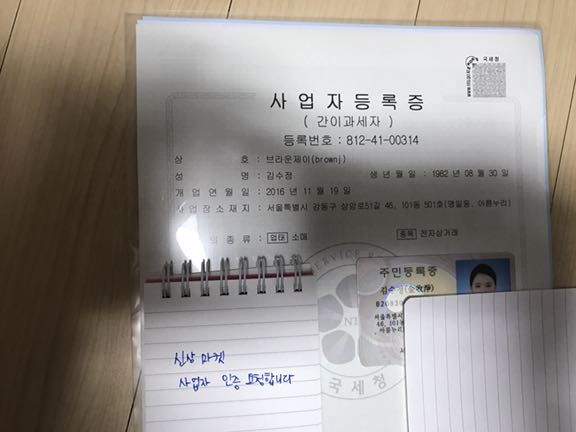 국세청
사업자등록증
( 간이과세자 )
등록번호 : 812-41-00314
상 호 : 브라운제이(brownj)
성 명 : 김수정 생 년 월 일 : 1982 년 08 월 30 일
개 업 연 월 일 : 2016 년 11 월 19 일
사 업 장 소 재 지 : 서울특별시 강동구 상암로51길 46, 101동 501호(명일동, 아름누리)
의 종 류 : 업태 소매 종목 전자상거래
SERVICE
NT
국세청
주민등록증
김수
820830
서울특별시
46, 101동
아름누리
신상 마켓
사업자 인증 요청합니다